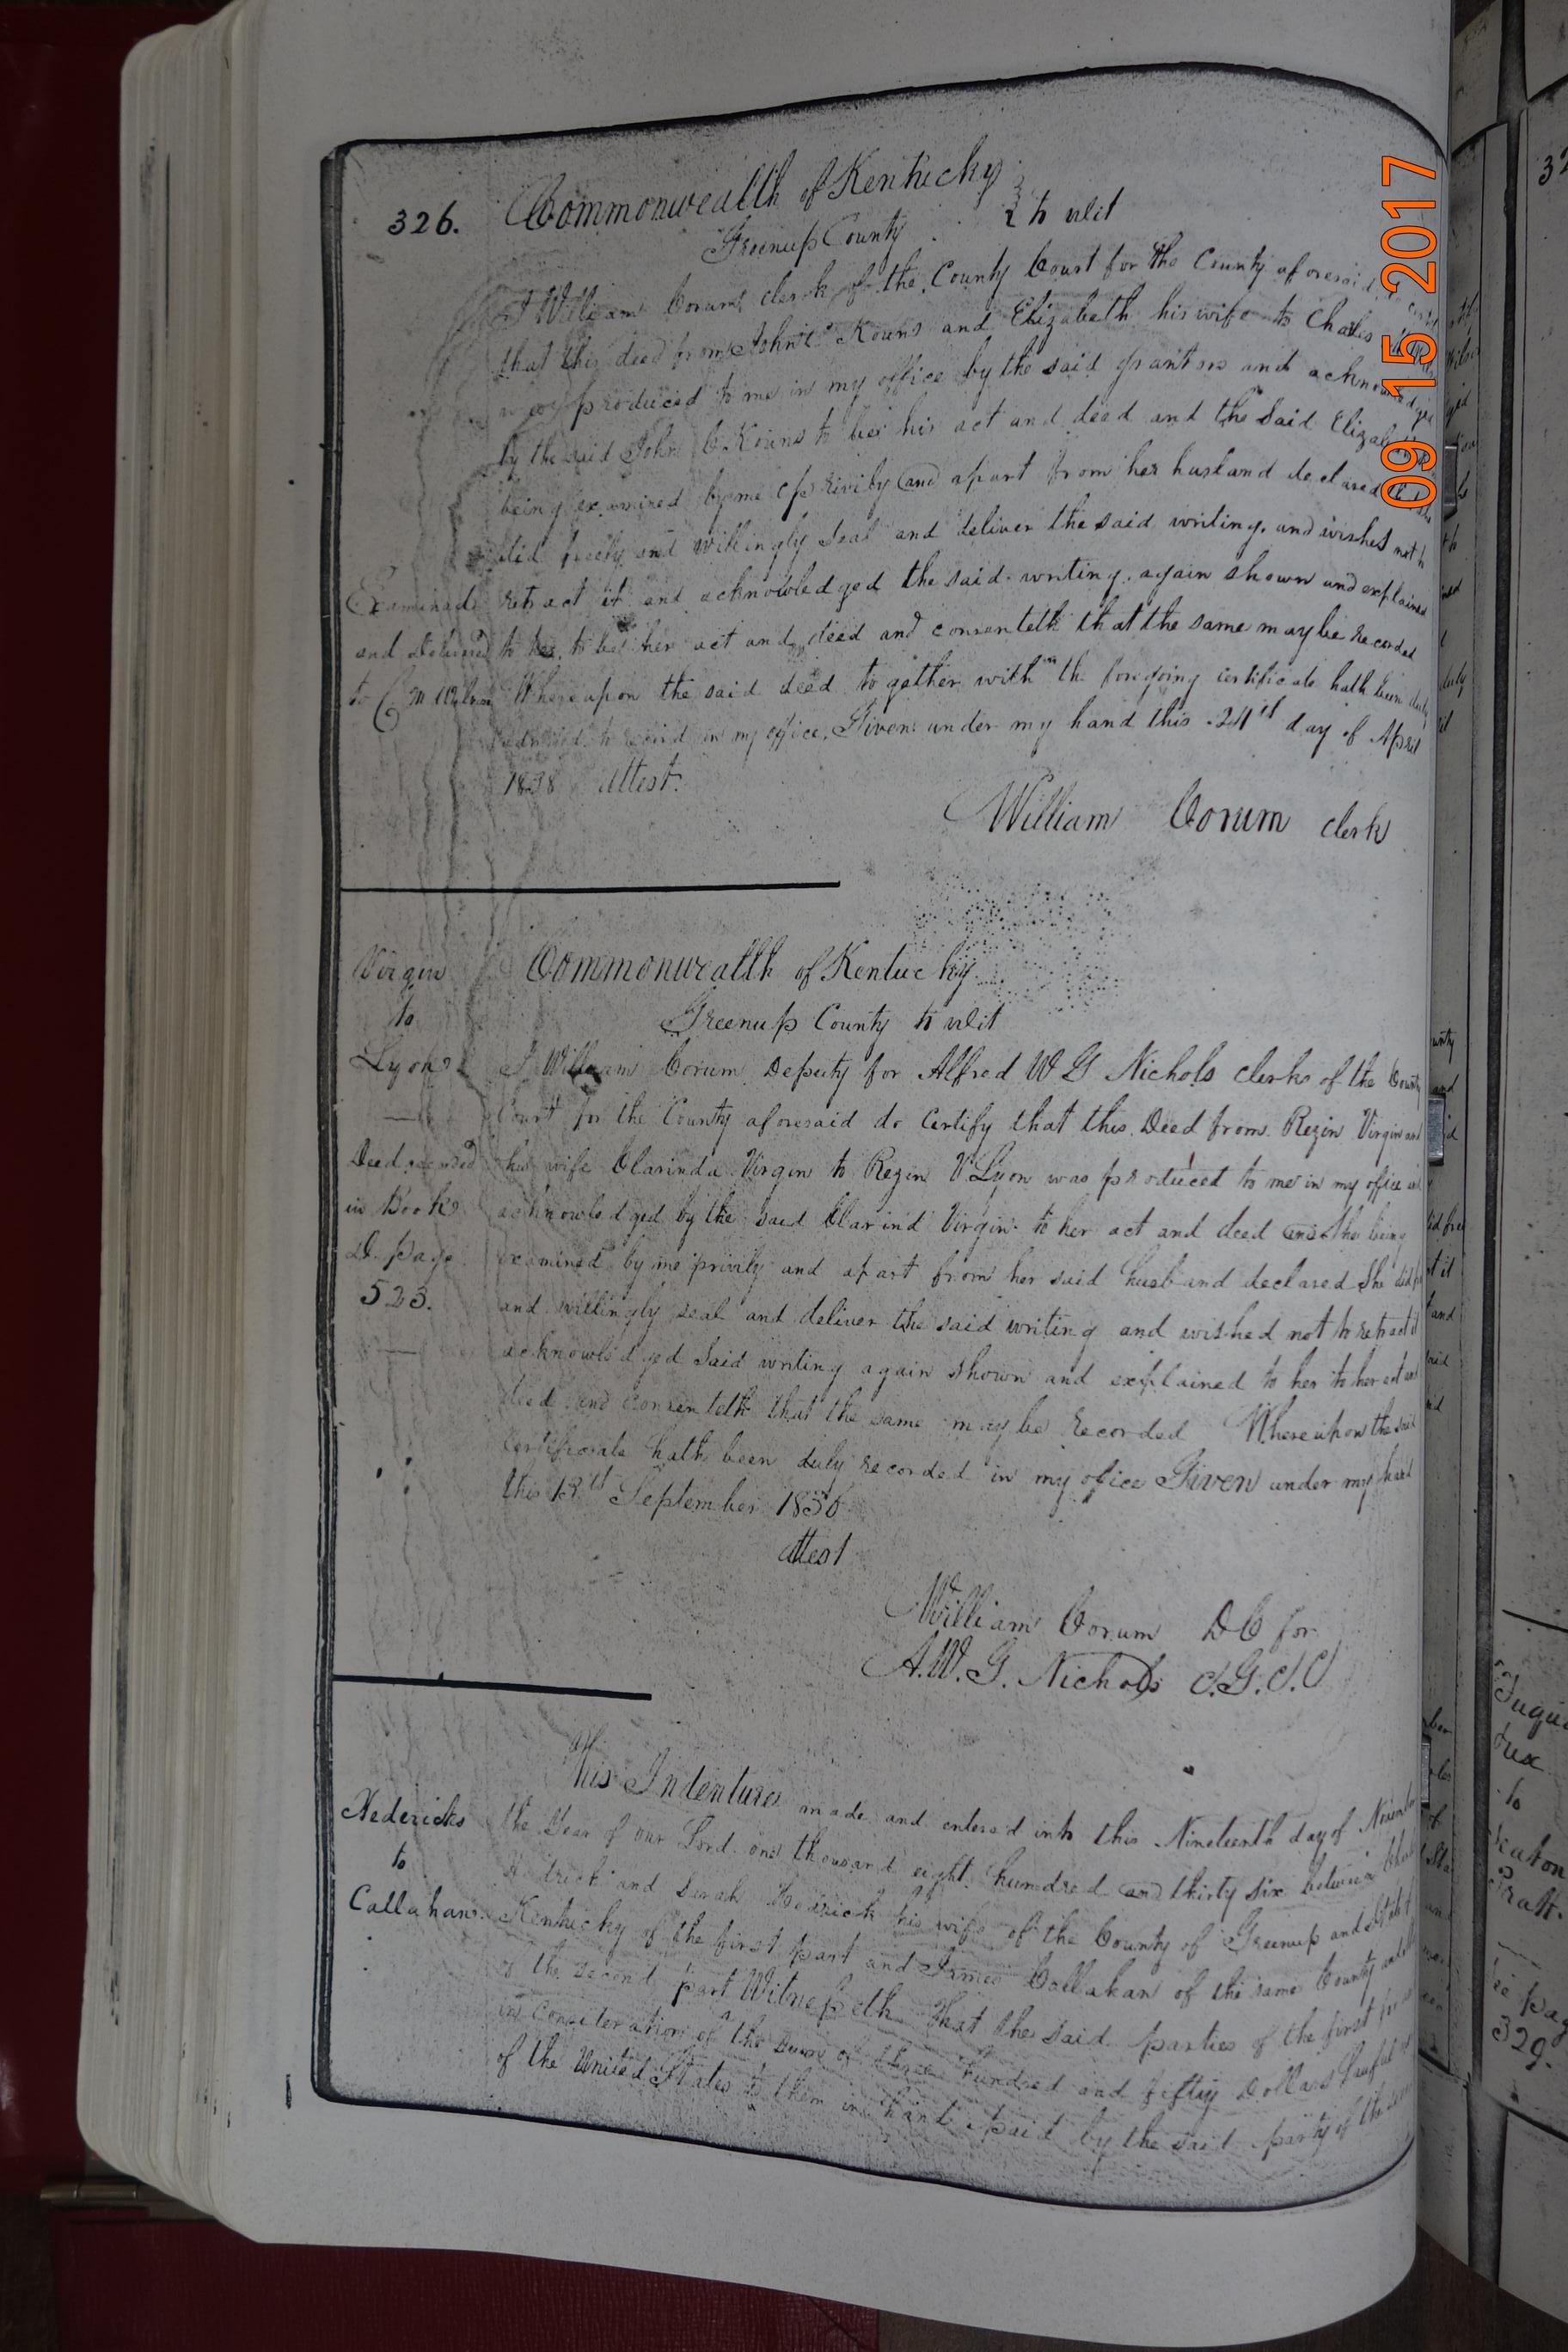 326.
Commonwealth of Kentucky
Greenup County } to wit
I William Corum, clerk of the County Court for the County aforesaid
that this deed from John C Kouns and Elizabeth his wife to Charles
was produced to me in my office by the said grantors and acknowledged
by the said John C Kouns to bee his act and deed and the Said Elizabeth
being examined by me privily and apart from her husband declared
did freely and willingly Seal and deliver the said writing, and wishes not to
Examined retract it and acknowledged the said writing, again shown and explained
and Delivered to her, to be her act and deed and consenteth that the same may be recorded
to C M Wilson Whereupon the said deed together with the foregoing certificate hath been duly
admitted to record in my office. Given under my hand this 24th day of April
1838 attest.
William Corum clerk
Virgin
to
Lyon
Deed recorded
in Book
D. page
523.
Commonwealth of Kentucky
Greenup County to wit
I William Corum Deputy for Alfred W G Nichols clerk of the County
Court for the County aforesaid do Certify that this Deed from Rezin Virgin and
his wife Clarinda Virgin to Rezin V Lyon was produced to me in my office and
acknowledged by the Said Clarind Virgin to her act and deed and she being
examined by me privily and apart from her said husband declared She did
and willingly seal and deliver the said writing and wished not to retract it
acknowledged Said writing again shown and explained to her to her act and
deed and consenteth that the same may be recorded Whereupon the said
Certificate hath been duly recorded in my office Given under my hand
this 13th September 1836
attest
William Corum DC for
A. W. G. Nichols C.G.C.C
Hedericks
to
Callahan
This Indenture made and entered into this Nineteenth day of November
the Year of our Lord one thousand eight hundred and thirty six between
Hedrick and Sarah Hedrick his wife of the County of Greenup and State of
Kentucky of the first part and James Callahan of the same County and
of the second part Witnesseth That the said parties of the first
in Consideration of the Sum of three hundred and fifty Dollars Lawful
of the United States to them in hand paid by the said party of the
09 15 2017
to
329.